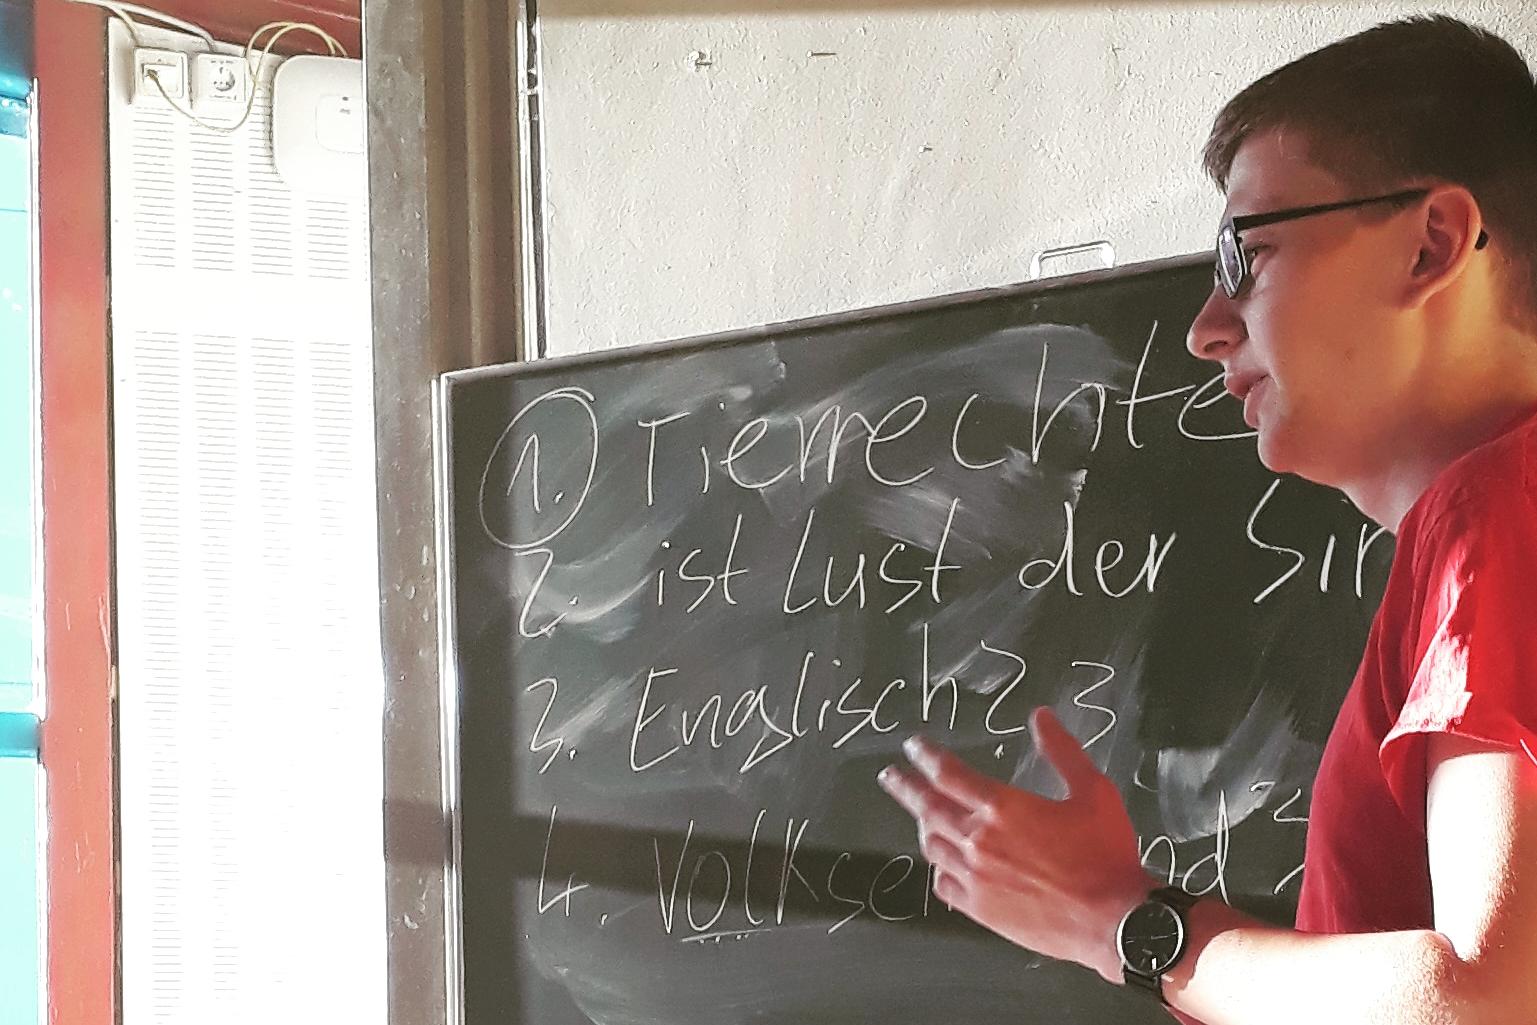 1. Tierrechte
2. ist Lust der Sin
3. Englisch? 3
4. Volksen nd